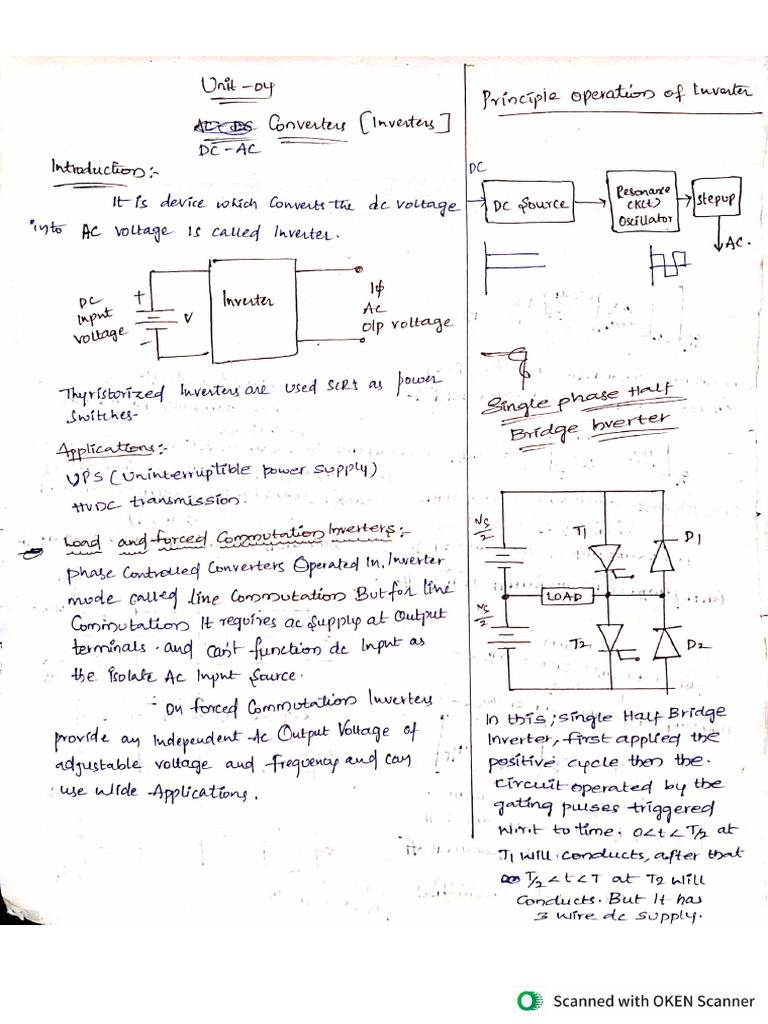 Unit-04
Converters [Inverters]
DC-AC
Introduction:-
It is device which Converts the dc voltage
into AC voltage is called Inverter.
DC
input
voltage
+
-
V
Inverter
1φ
AC
o/p voltage
Thyristorized Inverters are used SCRs as power
switches-
Applications:-
UPS (Uninterruptible power supply)
HVDC transmission.
Load and forced Commutation Inverters:-
phase Controlled Converters Operated In Inverter
mode called line Commutation But for line
Commutation It requires ac supply at Output
terminals and can't function dc Input as
the isolate Ac Input Source.
On forced Commutation Inverters
provide an Independent Ac Output Voltage of
adjustable voltage and frequency and can
use wide Applications.
Principle operation of Inverter
DC
DC Source
Resonance
Oscillator
Stepup
AC.
Single phase Half
Bridge Inverter
Vs/2
T1
D1
LOAD
Vs/2
T2
D2
In this; single Half Bridge
Inverter, first applied the
positive cycle then the.
circuit operated by the
gating pulses triggered
w.r.t to time. 0<t<T/2 at
T1 will conducts, after that
T/2<t<T at T2 will
conducts. But It has
3 wire dc supply.
Scanned with OKEN Scanner